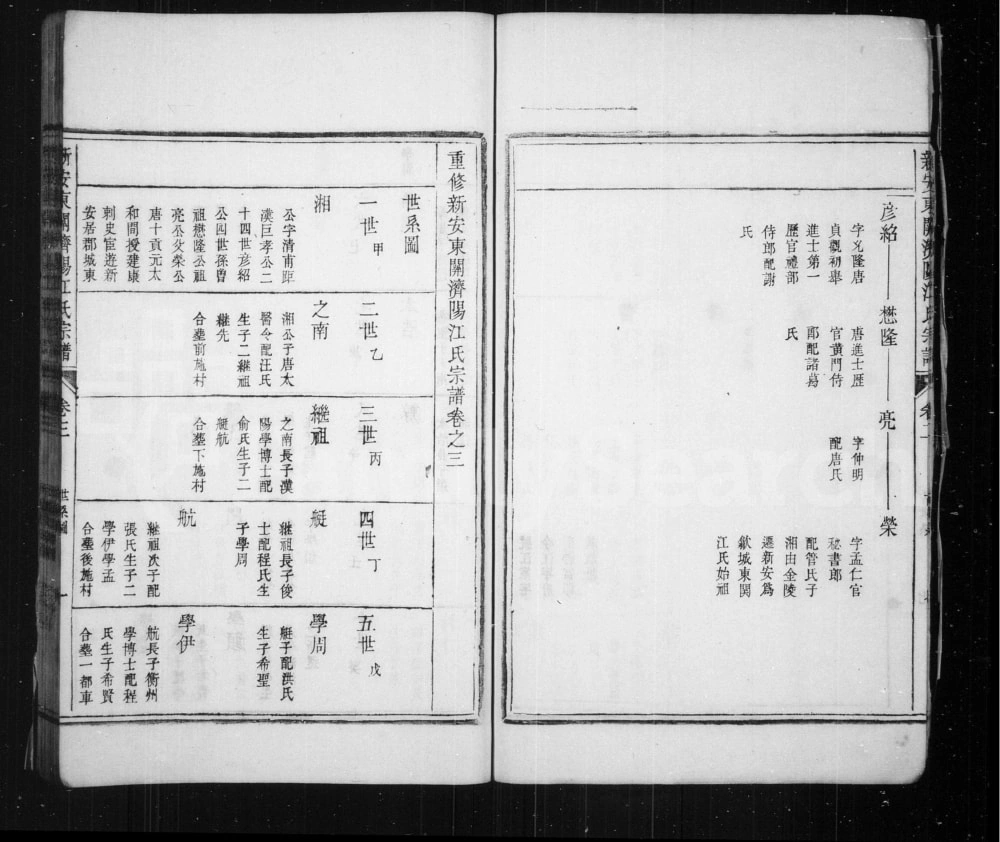 新安東關濟陽江氏宗譜
卷二
彥紹
字兆隆唐
貞觀初舉
進士第一
歷官禮部
侍郎配謝
氏
懋隆
唐進士歷
官黃門侍
郎配諸葛
氏
亮
字仲明
配唐氏
榮
字孟仁官
秘書郎
配管氏子
湘由金陵
遷新安為
歙城東関
江氏始祖
重修新安東關濟陽江氏宗譜卷之三
世系圖
一世甲
湘
公字清甫距
漢巨孝公二
十四世彥紹
公四世孫曾
祖懋隆公祖
亮公父榮公
唐十貢元太
和間授建康
刺史宦遊新
安居郡城東
二世乙
之南
湘公子唐太
醫令配汪氏
生子二繼祖
繼先
合塟前施村
三世丙
繼祖
之南長子漢
陽學博士配
俞氏生子二
艇航
合塟下施村
四世丁
艇
繼祖長子俊
士配程氏生
子學周
航
繼祖次子配
張氏生子二
學伊學孟
合塟後施村
五世戊
學周
艇子配洪氏
生子希聖
學伊
航長子衢州
學博士配程
氏生子希賢
合塟一都車
新安東關濟陽江氏宗譜
卷三
世系圖
一